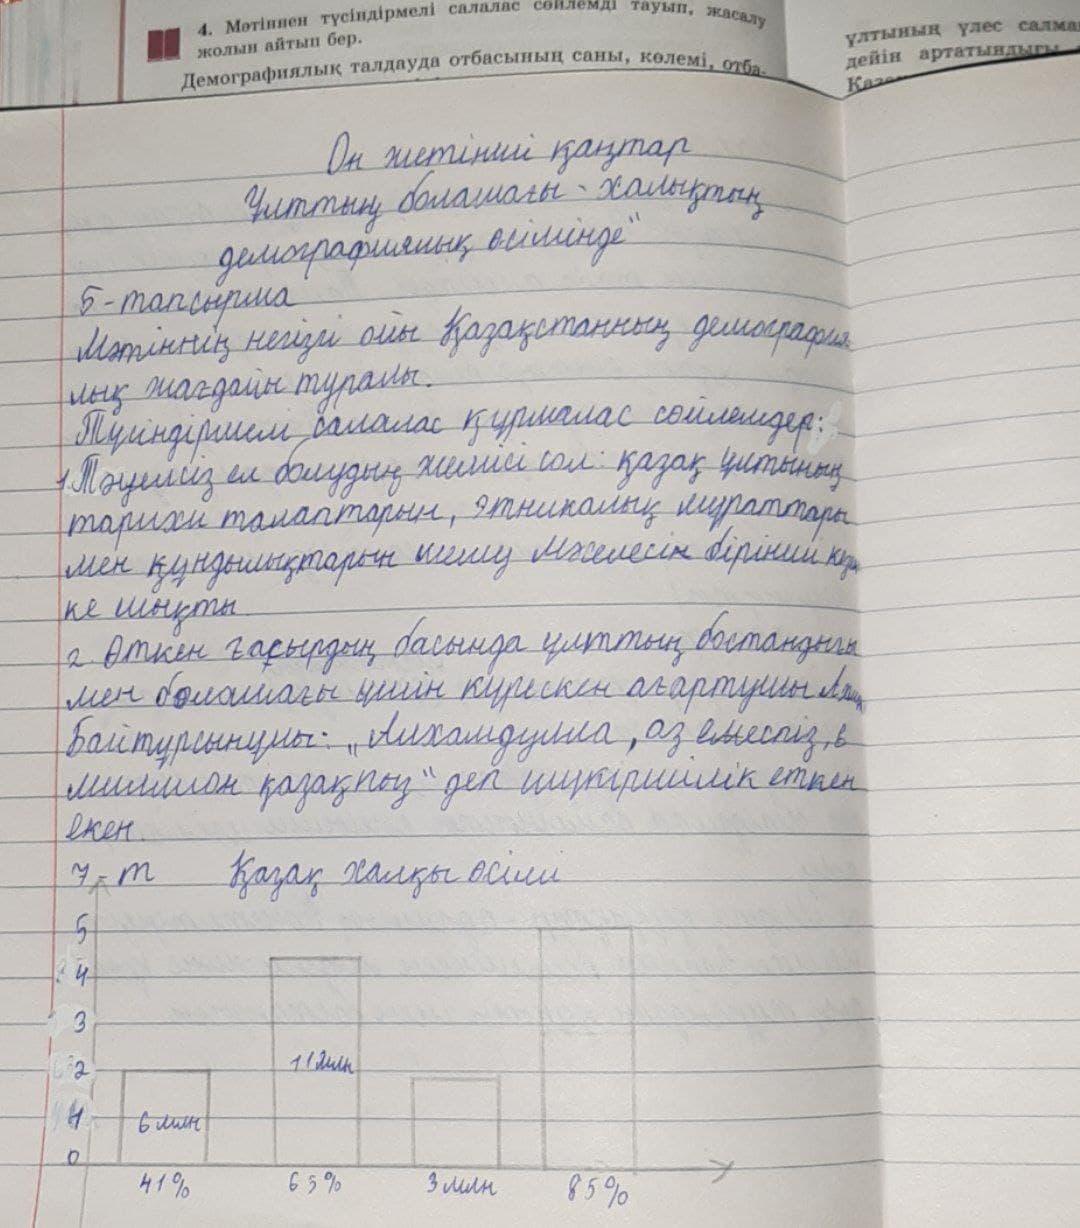 4. Мәтіннен түсіндірмелі салалас сөйлемді тауып, жасалу
жолын айтып бер.
Демографиялық талдауда отбасының саны, көлемі, отба-
ұлтының үлес салма
дейін артатындығы
Он жетінші қаңтар
Ұлттың болашағы - халықтың
демографиялық өсімінде"
5-тапсырма
Мәтіннің негізгі ойы Қазақстанның демография
лық жағдайы туралы.
Түсіндірмелі салалас құрмалас сөйлемдер:
1. Тәуелсіз ел болудың жемісі сол: қазақ ұлтының
тарихи талаптарын, этникалық мұраттары
мен құндылықтарын шешу мәселесін бірінші
ке шықты
2. Өткен ғасырдың басында ұлттың бостандығы
мен болашағы үшін күрескен ағартушы
Байтұрсынұлы: „Алхамдулла, аз емеспіз, 6
миллион қазақпыз" деп шүкіршілік еткен
екен.
7-т Қазақ халқы өсімі
5
4
3
2
1
0
6 млн
11 млн
41% 65% 3 млн 85%